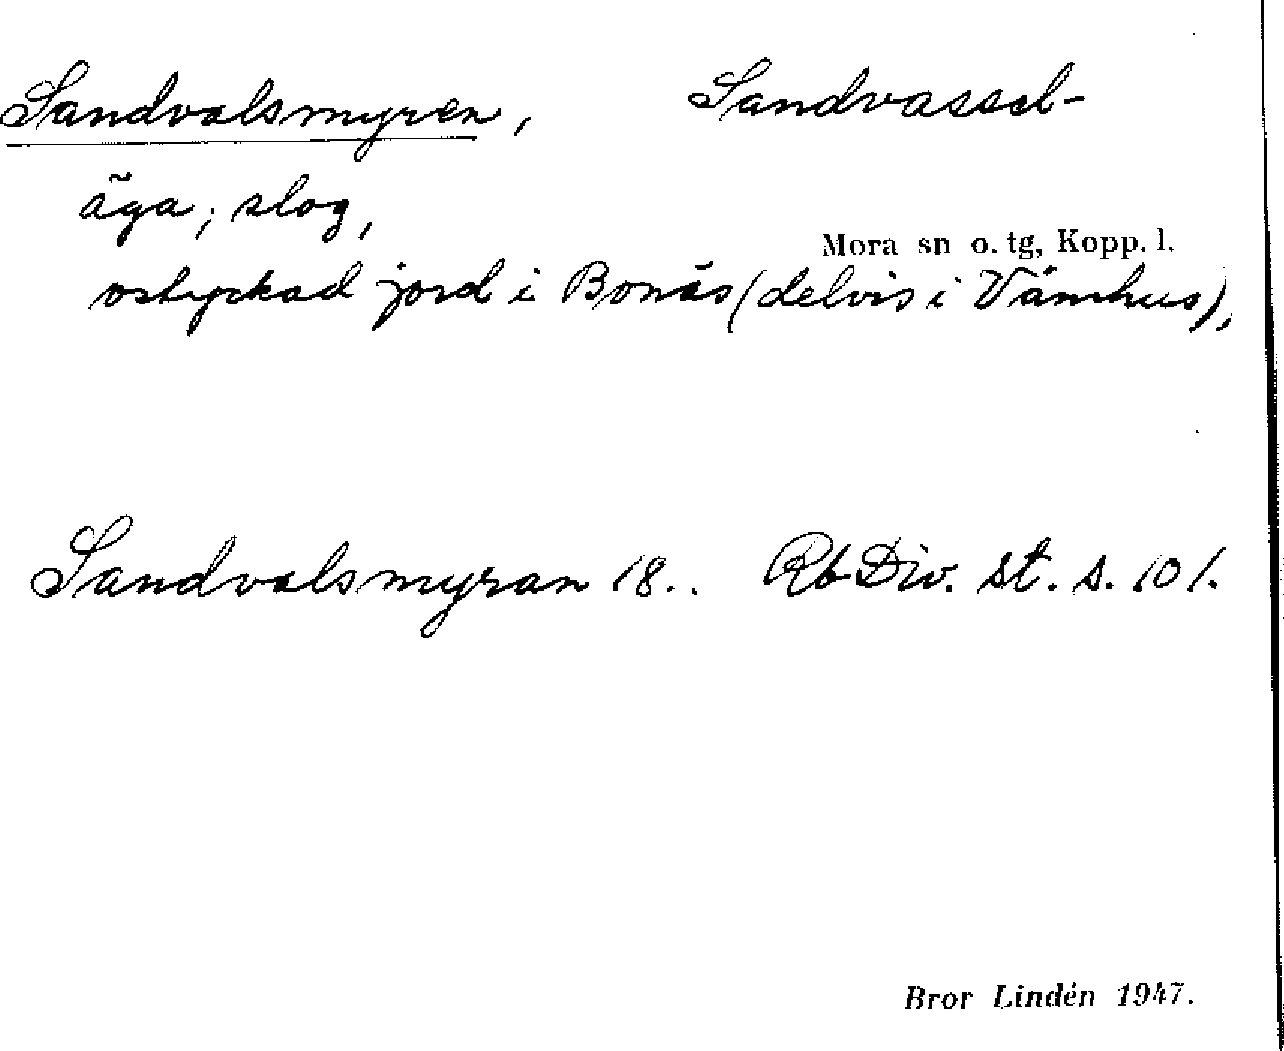 Sandvalsmyren, Sandvassel-
äga, slog,
Mora sn o. tg, Kopp. l.
ostyckad jord i Bonäs (delvis i Våmhus),
Sandvalsmyran 18.. Rb Div. st. s. 101.
Bror Lindén 1947.